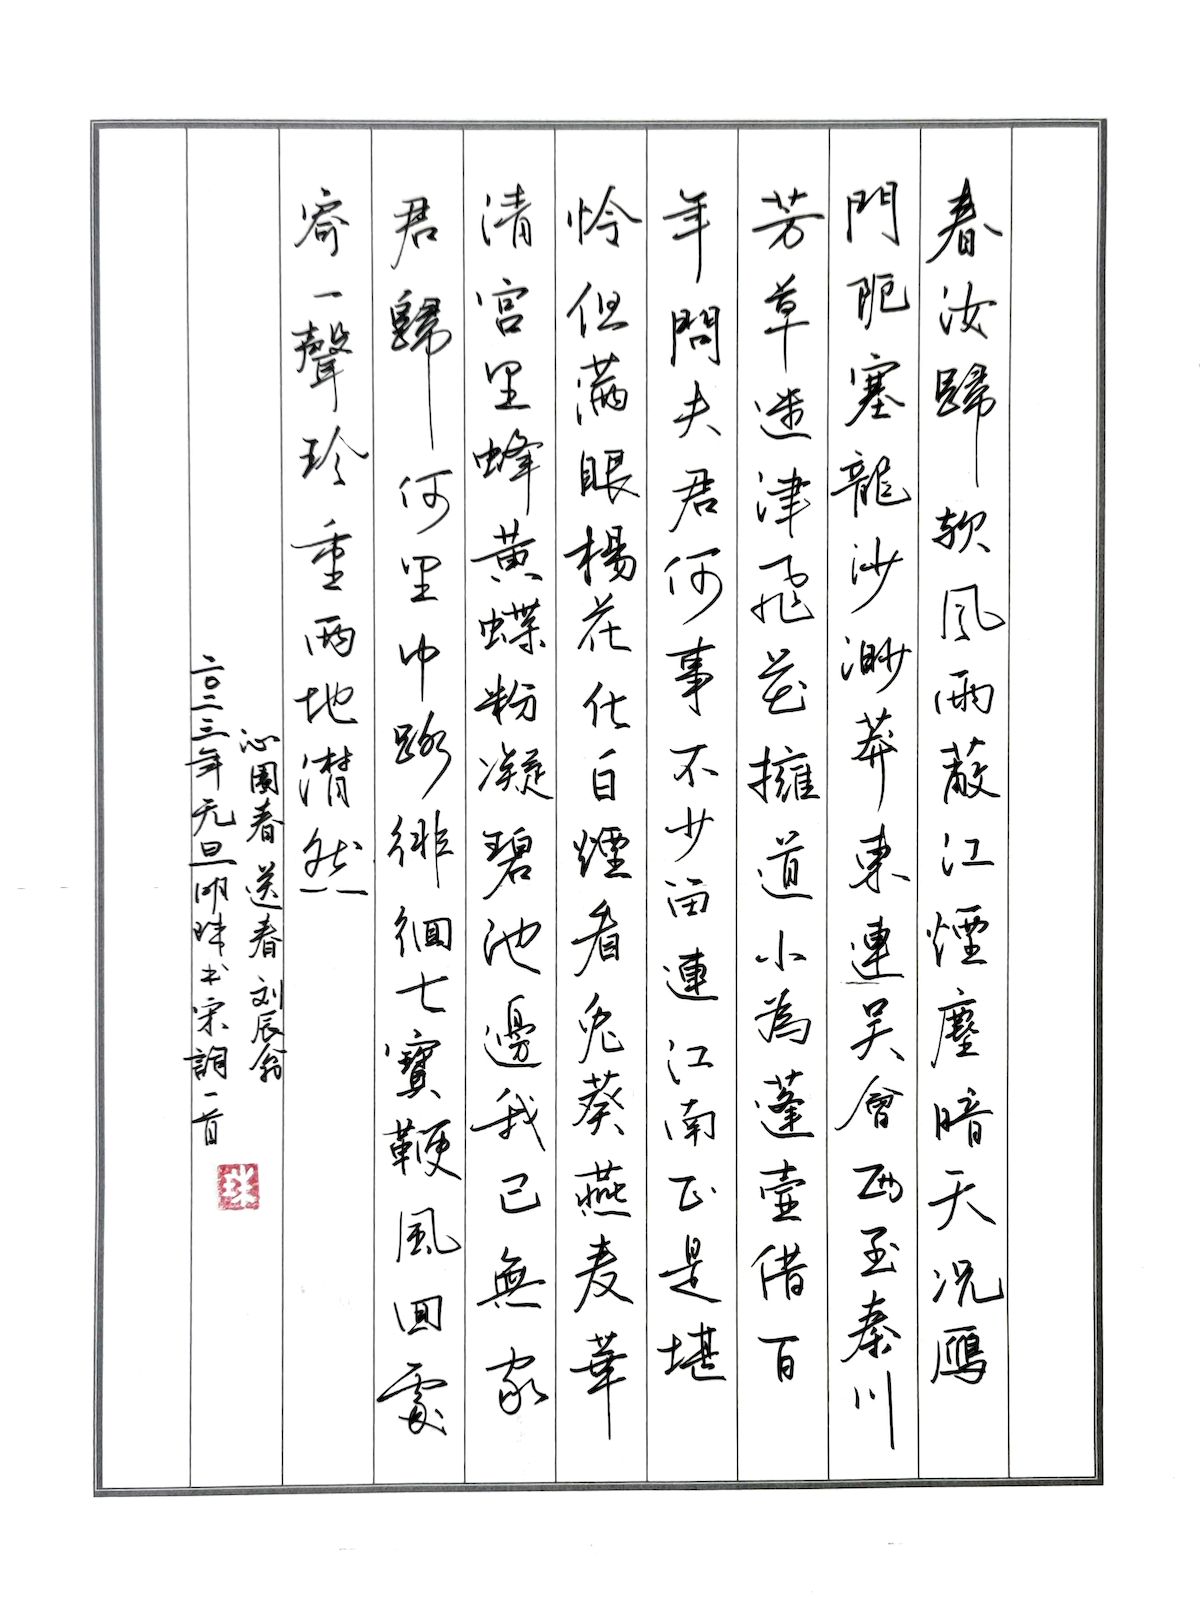 春汝歸欤风雨蔽江煙塵暗天况鴈
門阨塞龍沙渺莽東連吴會西至秦川
芳草迷津飛花擁道小為蓬壺借百
年問夫君何事不少留連江南正是堪
怜但满眼楊花化白煙看兔葵燕麦華
清宫里蜂黄蝶粉凝碧池邊我已無家
君歸何里中路徘徊七寶鞭風回處
寄一聲珍重兩地潸然
沁園春 送春 刘辰翁
二〇二三年元旦明珠书宋詞一首
珠